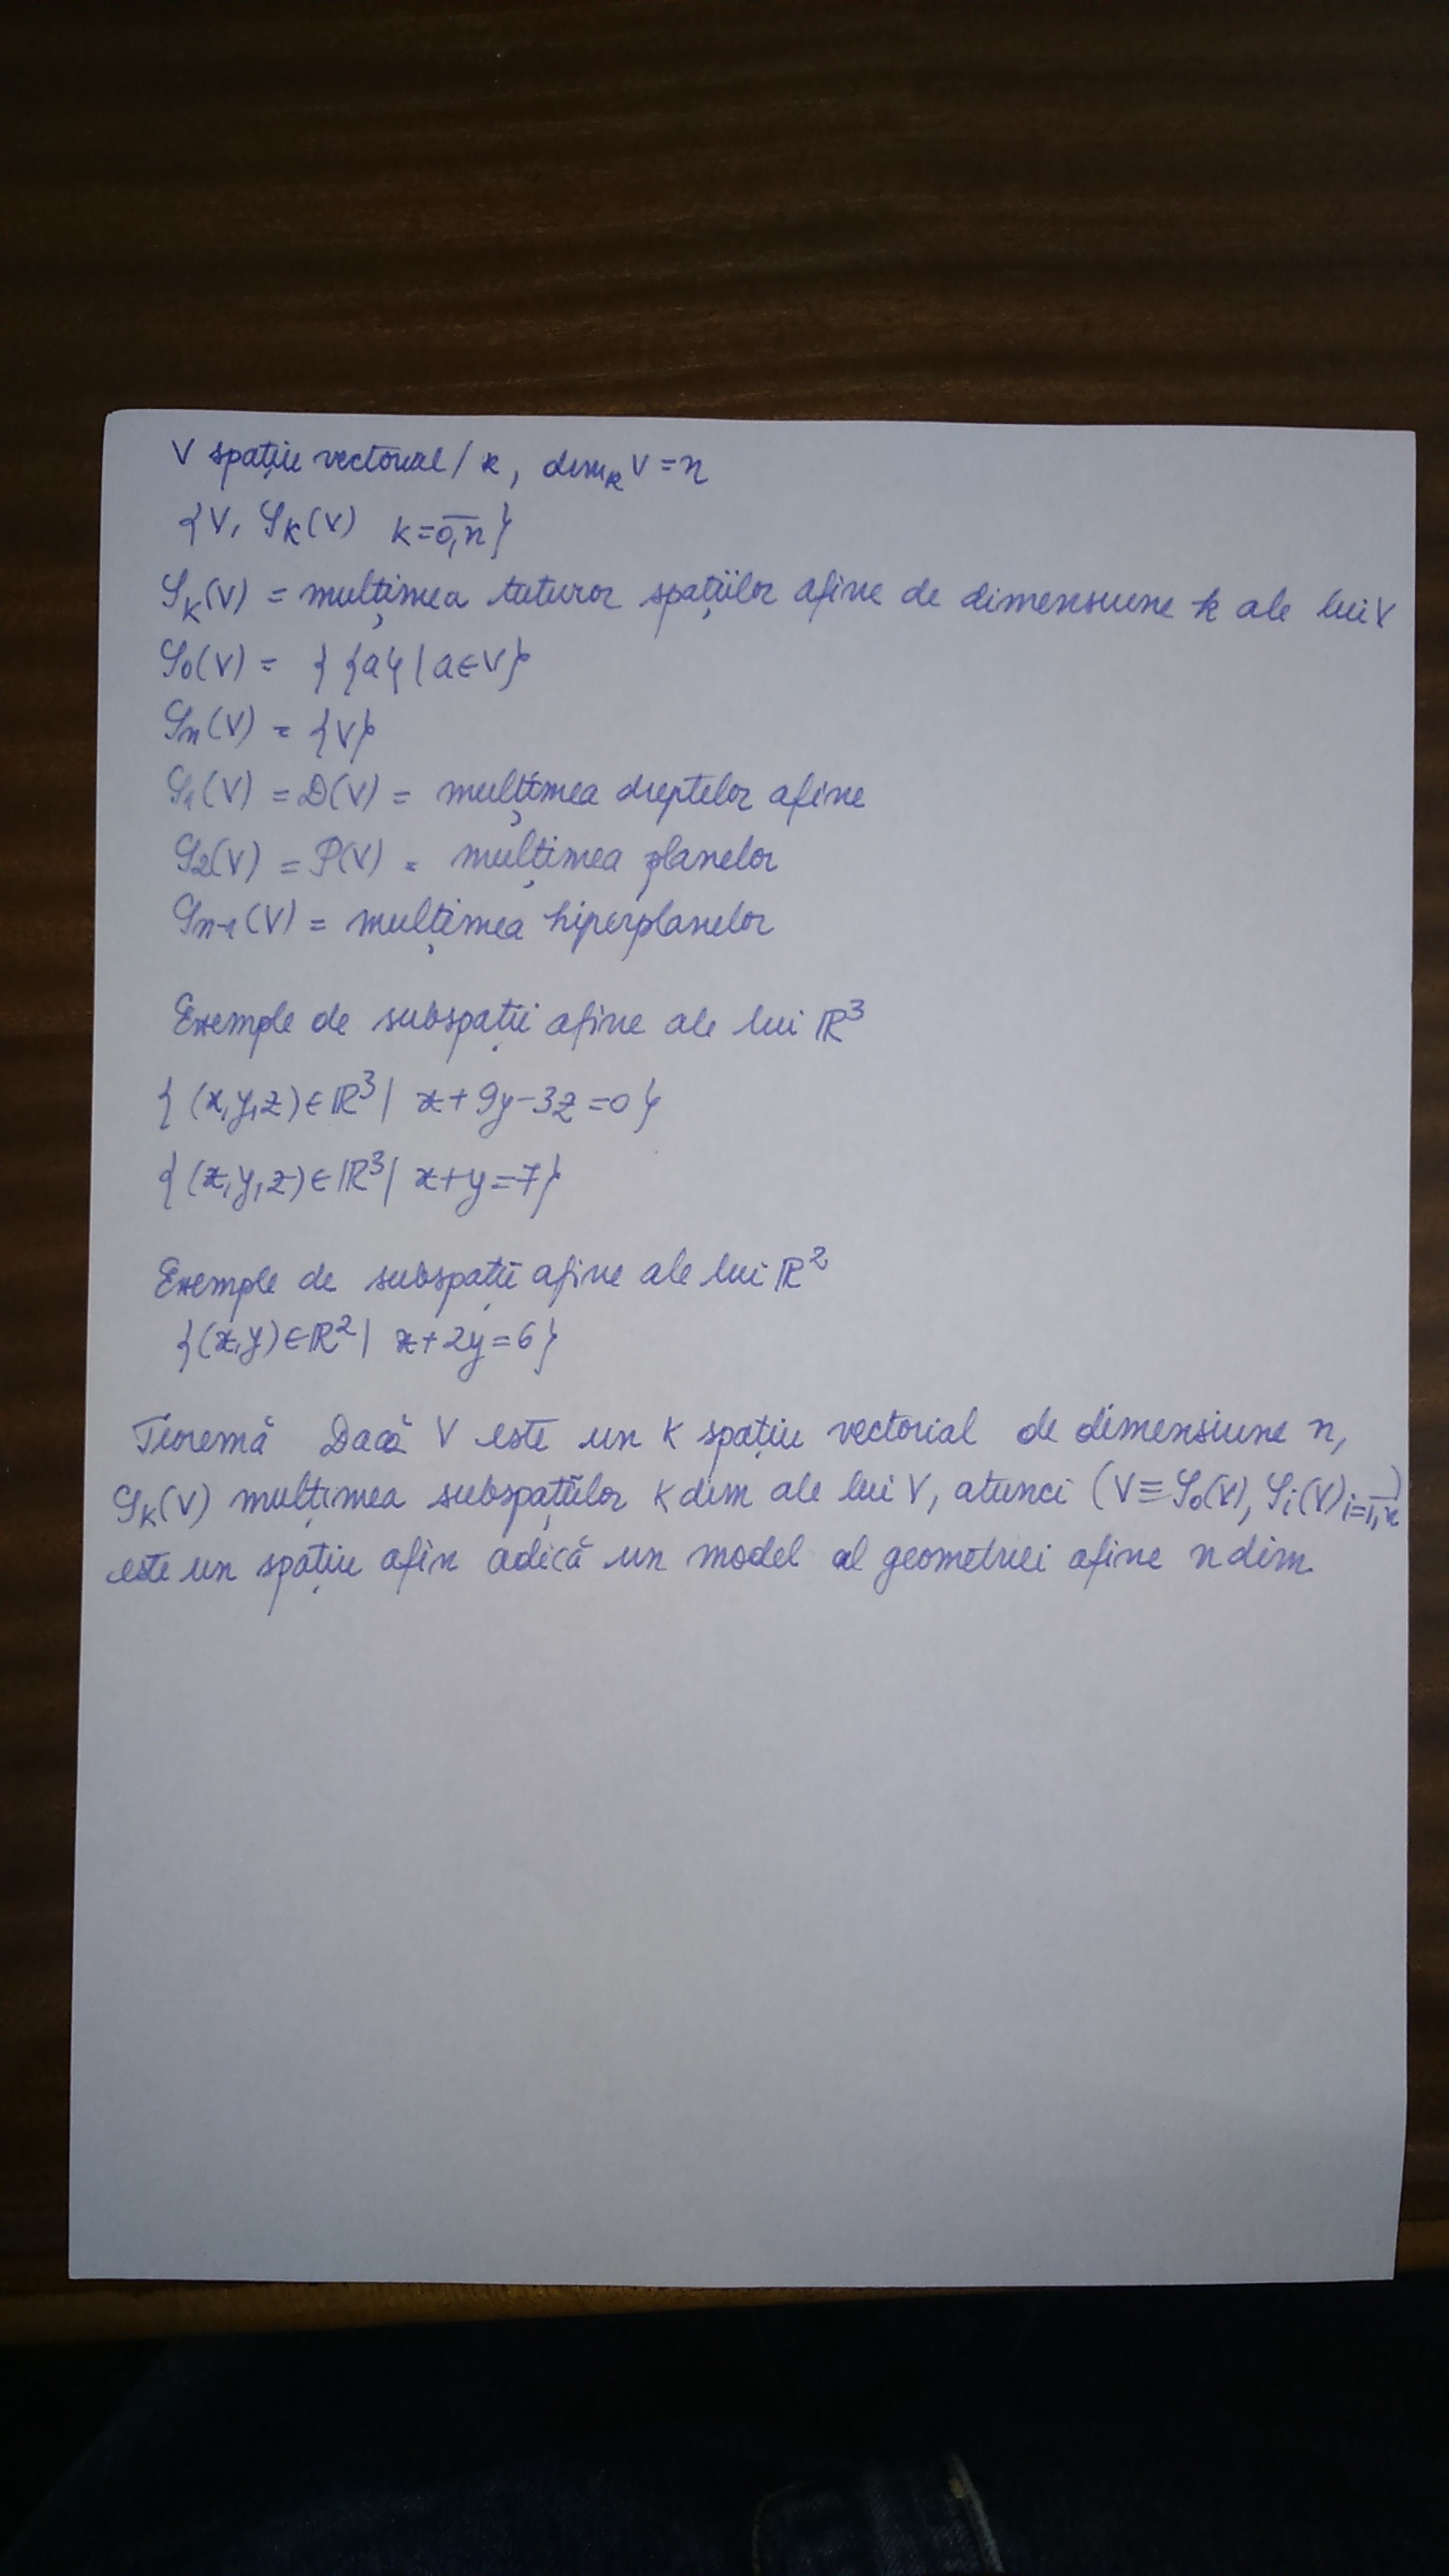 V spațiu vectorial / k, dim_k V = n
{V, 𝒮_k(V) k = \overline{0,n}}
𝒮_k(V) = mulțimea tuturor spațiilor afine de dimensiune k ale lui V
𝒮_0(V) = { {a} | a ∈ V}
𝒮_n(V) = {V}
𝒮_1(V) = D(V) = mulțimea dreptelor afine
𝒮_2(V) = P(V) = mulțimea planelor
𝒮_{n-1}(V) = mulțimea hiperplanelor
Exemple de subspații afine ale lui ℝ³
{(x,y,z) ∈ ℝ³ | x + 9y - 3z = 0}
{(x,y,z) ∈ ℝ³ | x + y = 7}
Exemple de subspații afine ale lui ℝ²
{(x,y) ∈ ℝ² | x + 2y = 6}
Teoremă Dacă V este un k spațiu vectorial de dimensiune n,
𝒮_k(V) mulțimea subspațiilor k dim ale lui V, atunci (V ≡ 𝒮_0(V), 𝒮_i(V)_{i=\overline{1,n}})
este un spațiu afin adică un model al geometriei afine n dim.